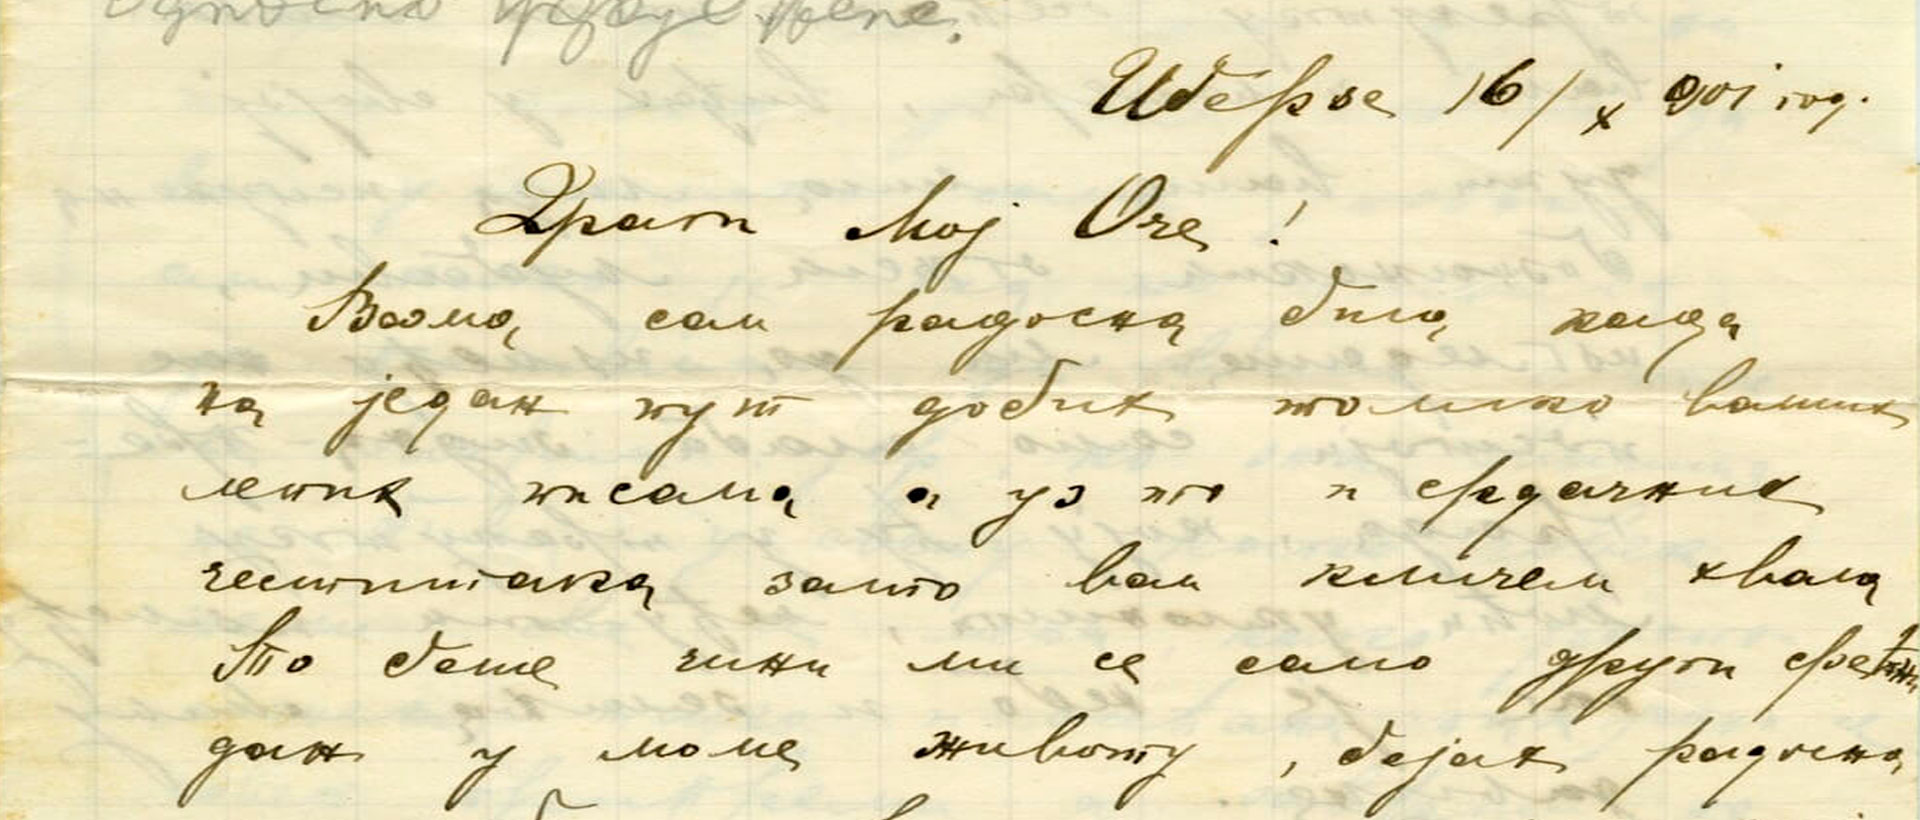 16/X 901 год.
Драги мој Оче!
Веома сам радосна била када
на један пут добих толико ваших
лепих писама а уз то и срдачних
честитака зашто вам кличем хвала
То беше чини ми се само други срећни
дан у моме животу, бејах радосна